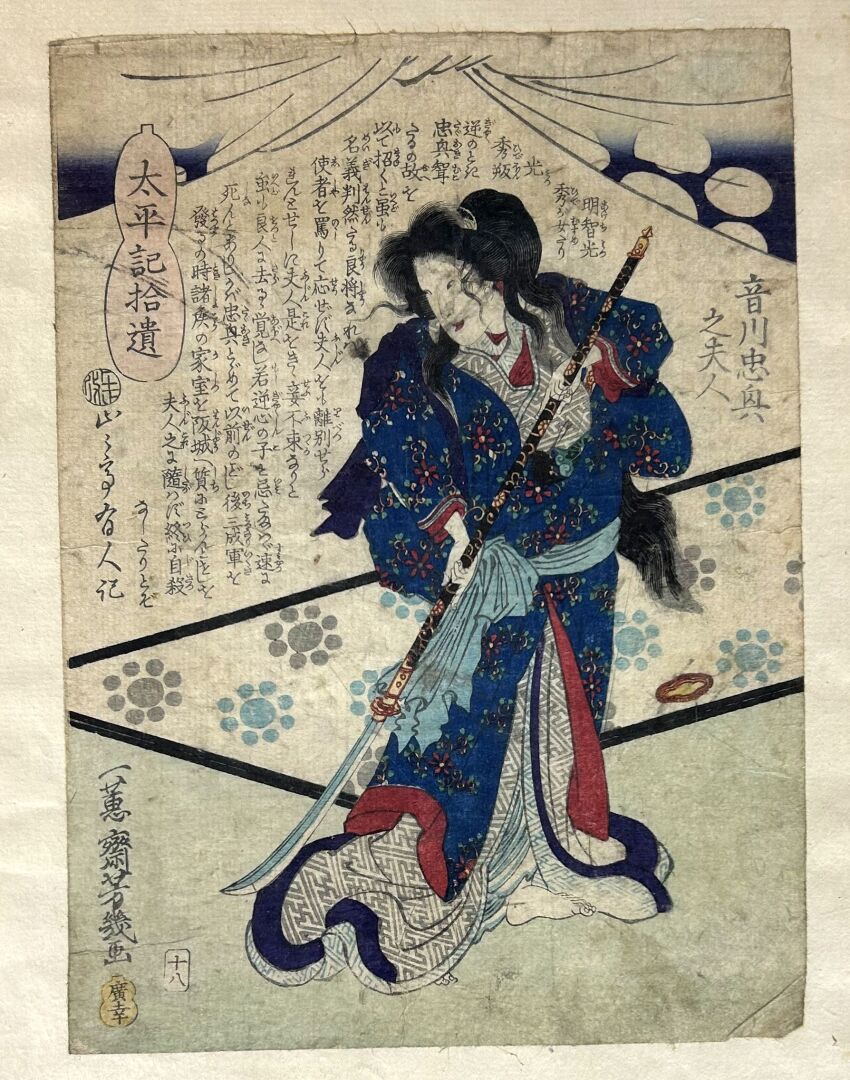 太平記拾遺
音川忠興
之夫人
明智光
秀が女たり
光
秀叛
逆のとき
忠興聟
たるの故を
以て招くと虽も
名義判然たる良将なれバ
使者を罵りて応ぜず夫人をも離別せら
れんとせしに夫人是をきゝ妾不束なりと
虽も良人に去る覚なし若逆心の子を忌たまはゞ速に
死んとありしかバ忠興とゞめて以前のごとし後三成軍を
發るの時諸矦の家室を阪城へ質にとらんとせしを
夫人之に隨はず終に自殺
なしたりとぞ
山々亭有人記
一蕙齋芳幾画
十八
廣幸